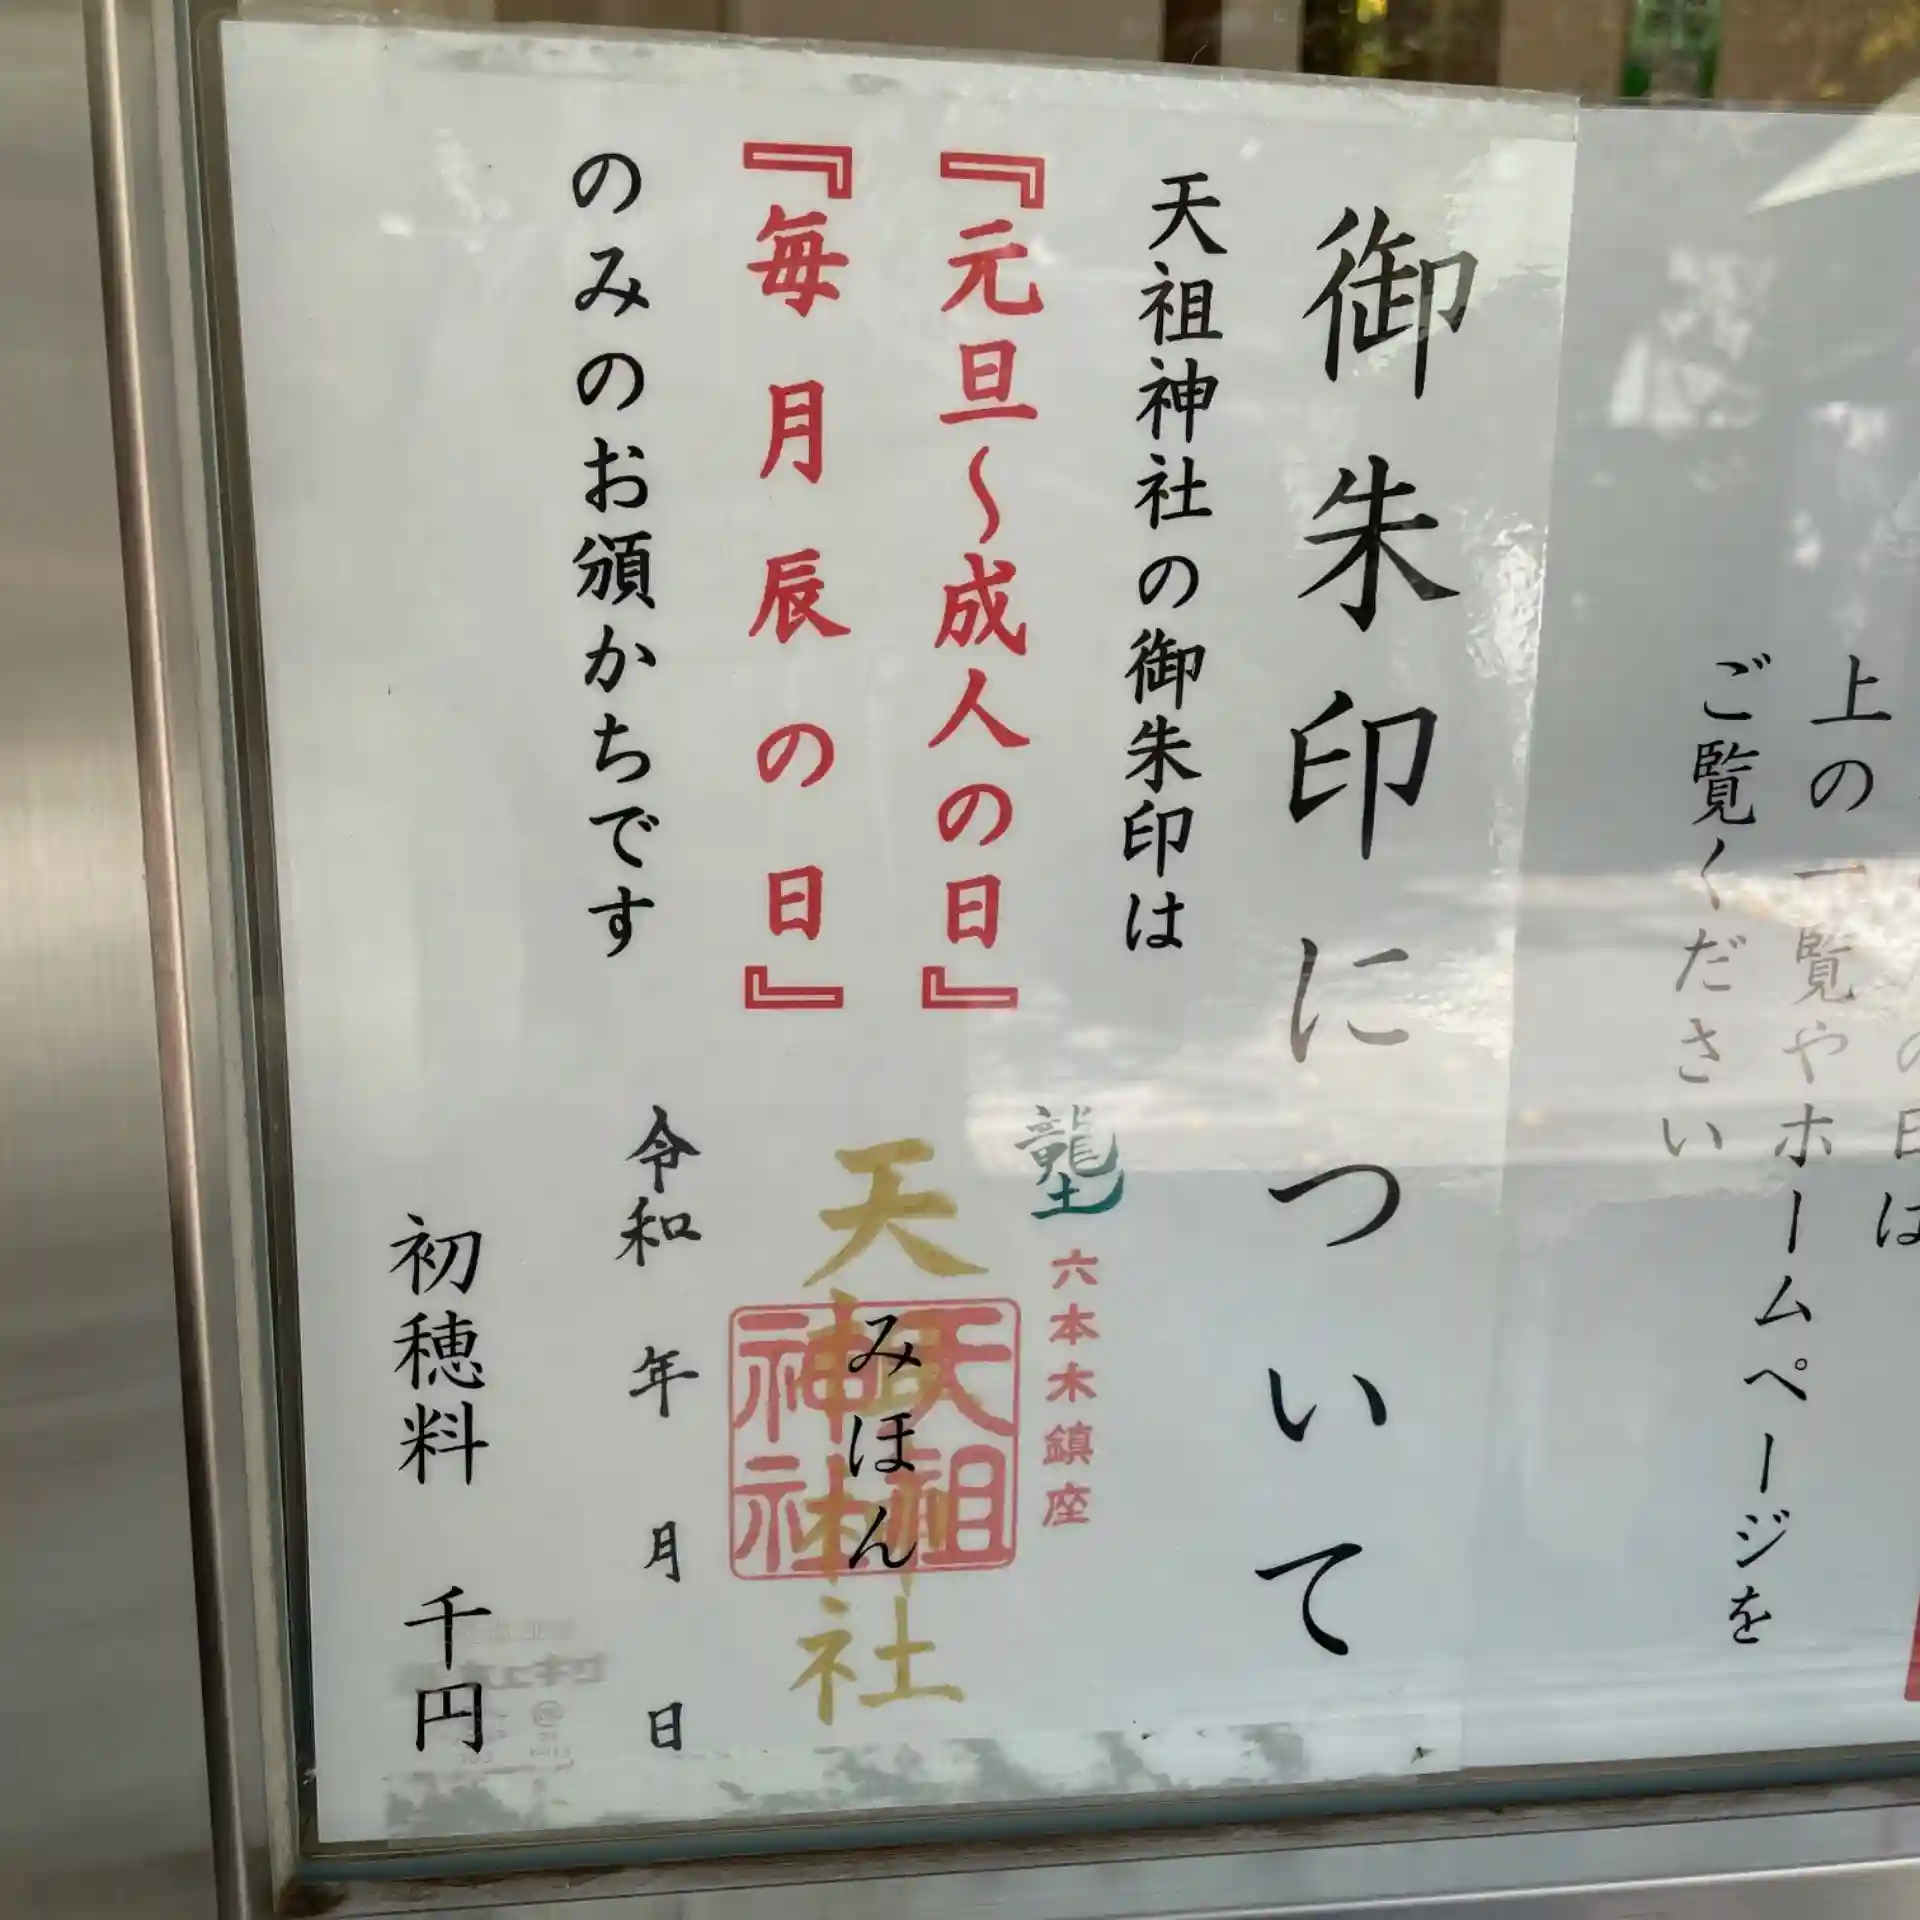 上の一覧やホームページを
ご覧ください
御朱印について
天祖神社の御朱印は
『元旦～成人の日』
『毎月辰の日』
のみのお頒かちです
龍土
六本木鎮座
天祖神社
天祖神社
みほん
令和 年 月 日
初穂料 千円